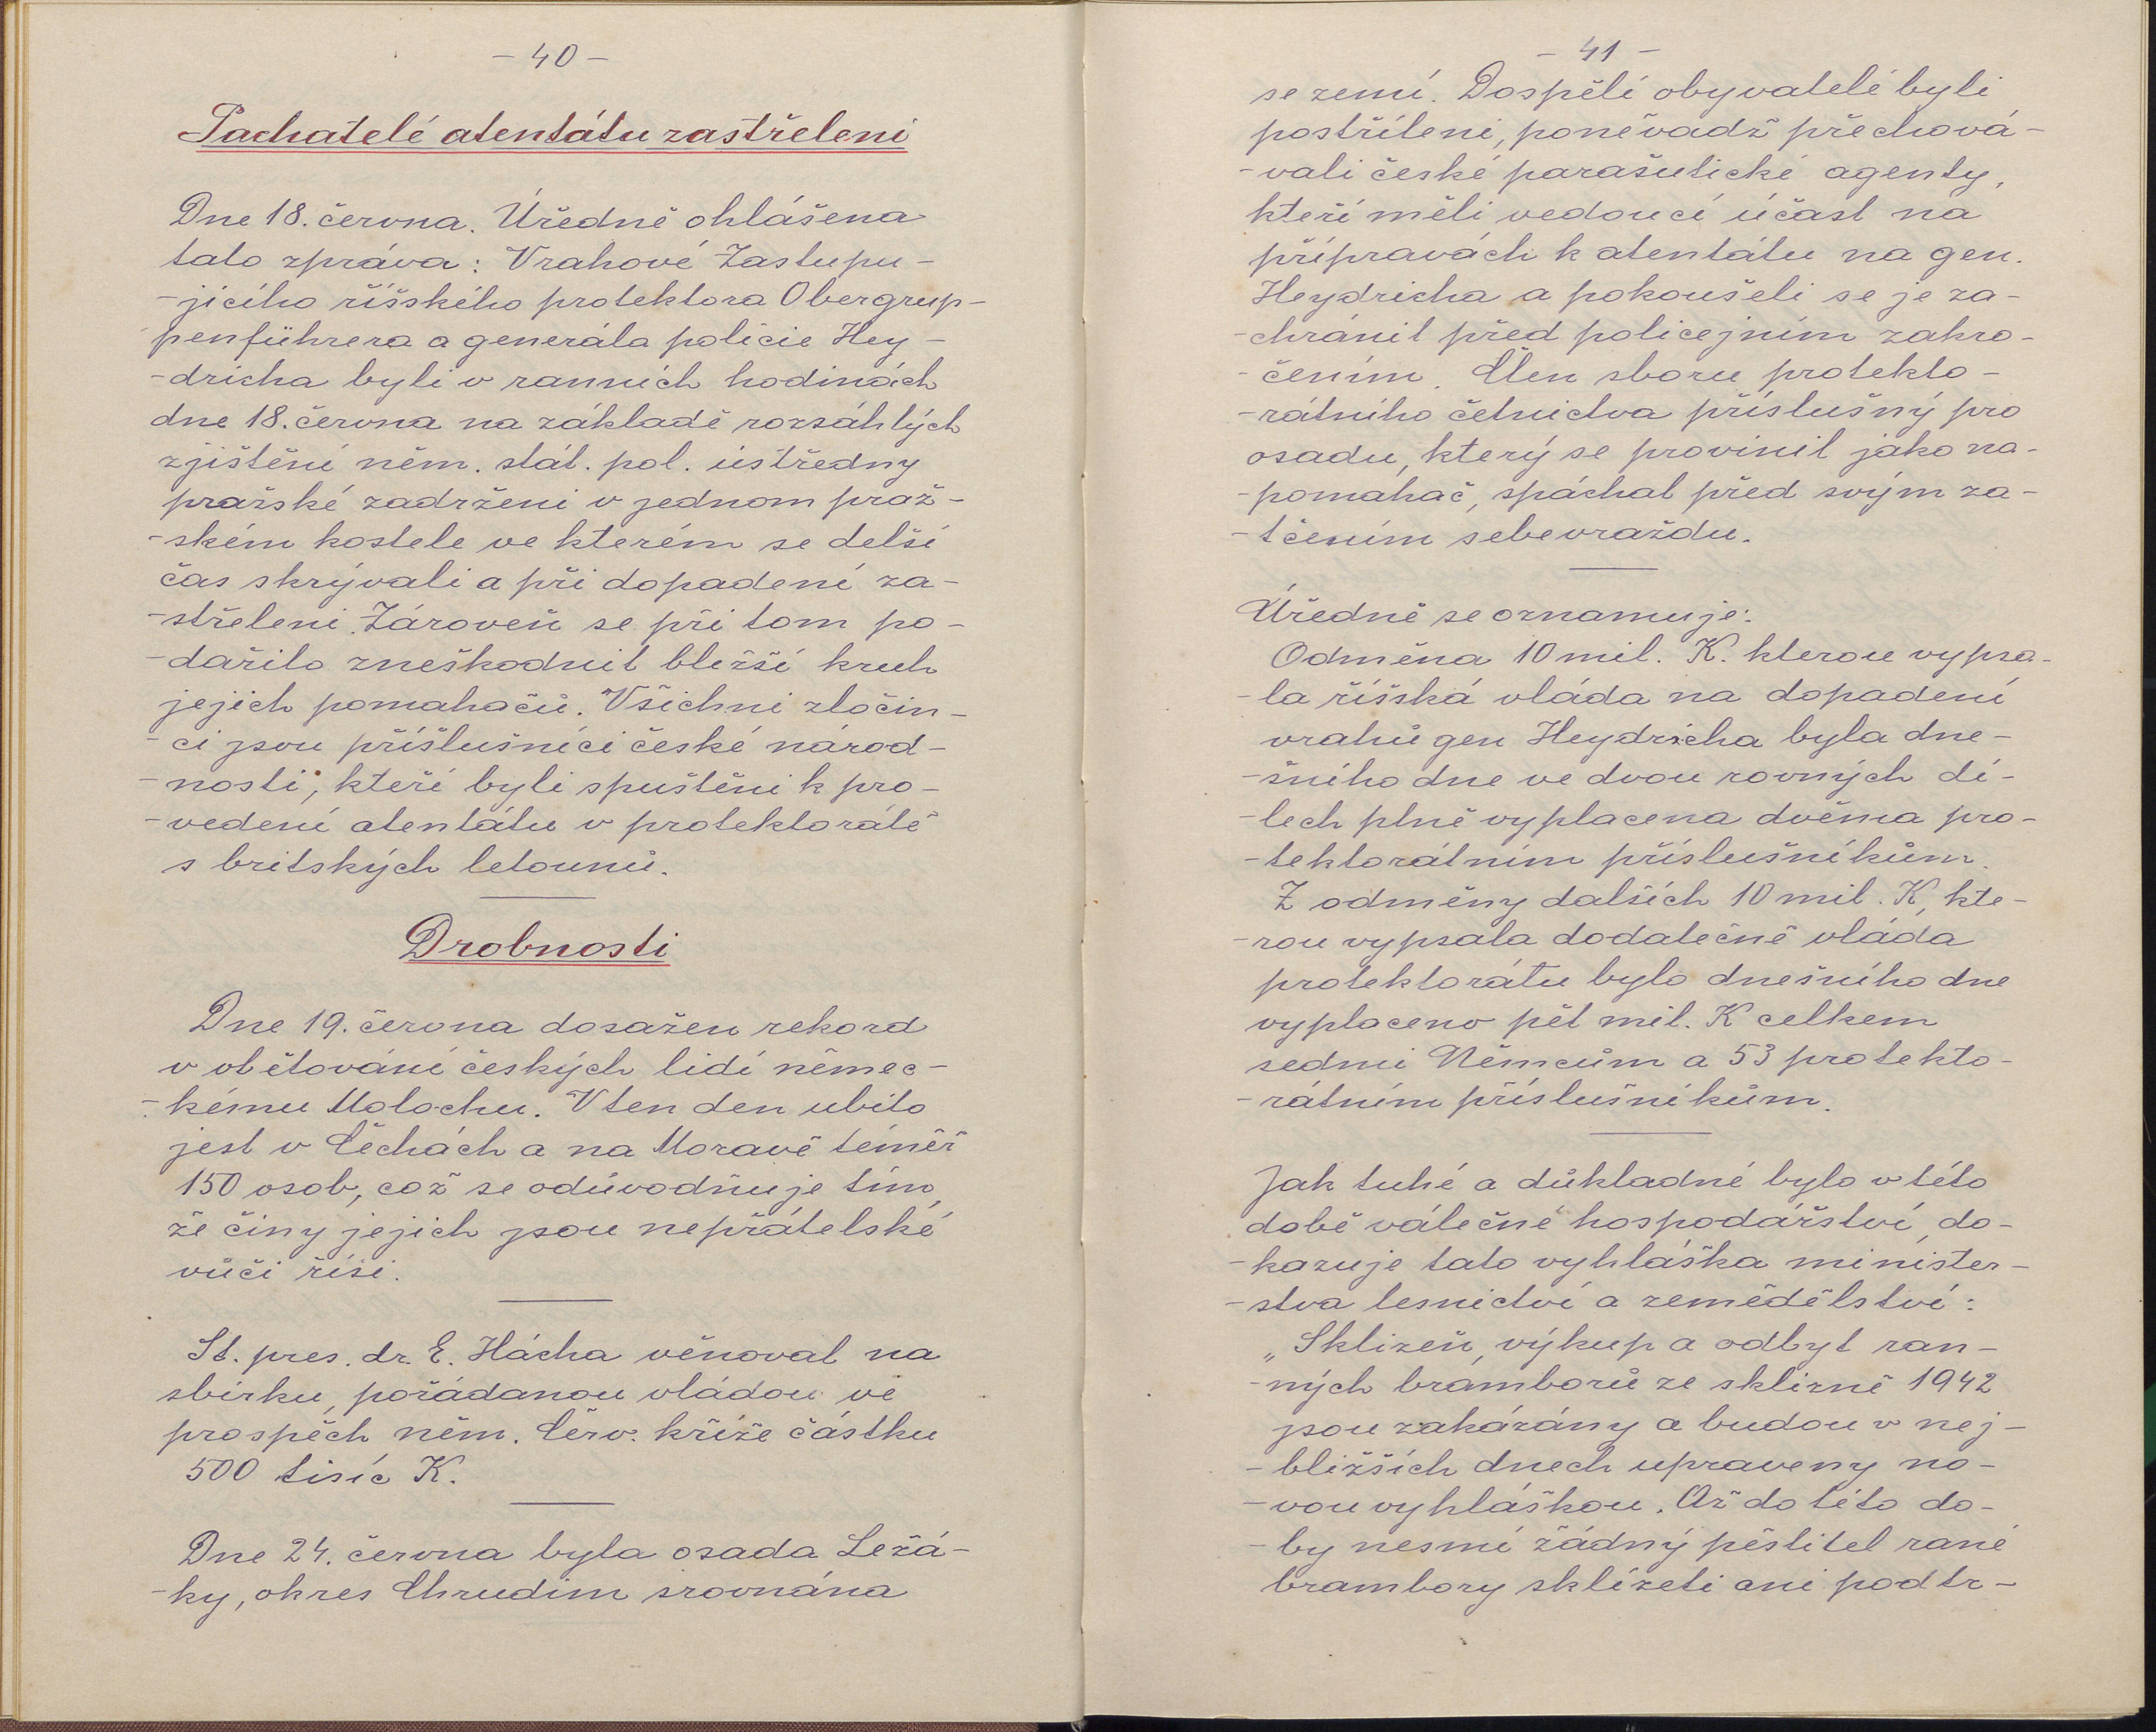 - 40 -
Pachatelé atentátu zastřeleni
Dne 18. června. Úředně ohlášena
tato zpráva: Vrahové Zastupu-
-jícího říšského protektora Obergrup-
penführera a generála policie Hey-
-dricha byli v ranních hodinách
dne 18. června na základě rozsáhlých
zjištění něm. stát. pol. ústředny
pražské zadrženi v jednom praž-
-ském kostele ve kterém se delší
čas skrývali a při dopadení za-
-střeleni. Zároveň se při tom po-
-dařilo zneškodnit bližší kruh
jejich pomahačů. Všichni zločin-
-ci jsou příslušníci české národ-
-nosti, kteří byli spuštěni k pro-
-vedení atentátu v protektorátě
s britských letounů.
Drobnosti
Dne 19. června dosažen rekord
v obětování českých lidí němec-
-kému Molochu. V ten den ubito
jest v Čechách a na Moravě téměř
150 osob, což se odůvodňuje tím,
že činy jejich jsou nepřátelské
vůči říši.
St. pres. dr. E. Hácha věnoval na
sbírku, pořádanou vládou ve
prospěch něm. Červ. kříže částku
500 tisíc K.
Dne 24. června byla osada Ležá-
-ky, okres Chrudim srovnána
- 41 -
se zemí. Dospělí obyvatelé byli
postříleni, poněvadž přechová-
-vali české parašutické agenty,
kteří měli vedoucí účast na
přípravách k atentátu na gen.
Heydricha a pokoušeli se je za-
-chránit před policejním zakro-
-čením. Člen sboru protekto-
-rátního četnictva příslušný pro
osadu, který se provinil jako na-
-pomahač, spáchal před svým za-
-tčením sebevraždu.
Úředně se oznamuje:
Odměna 10 mil. K. kterou vypsa-
-la říšská vláda na dopadení
vrahů gen Heydricha byla dne-
-šního dne ve dvou rovných dí-
-lech plně vyplacena dvěma pro-
-tektorátním příslušníkům.
Z odměny dalších 10 mil. K, kte-
-rou vypsala dodatečně vláda
protektorátu bylo dnešního dne
vyplaceno pět mil. K celkem
sedmi Němcům a 53 protekto-
-rátním příslušníkům.
Jak tuhé a důkladné bylo v této
době válečné hospodářství, do-
-kazuje tato vyhláška minister-
-stva lesnictví a zemědělství:
„Sklizeň, výkup a odbyt ran-
-ných bramborů ze sklizně 1942
jsou zakázány a budou v nej-
-bližších dnech upraveny no-
-vou vyhláškou. Až do této do-
-by nesmí žádný pěstitel rané
brambory sklízeti ani podtr-